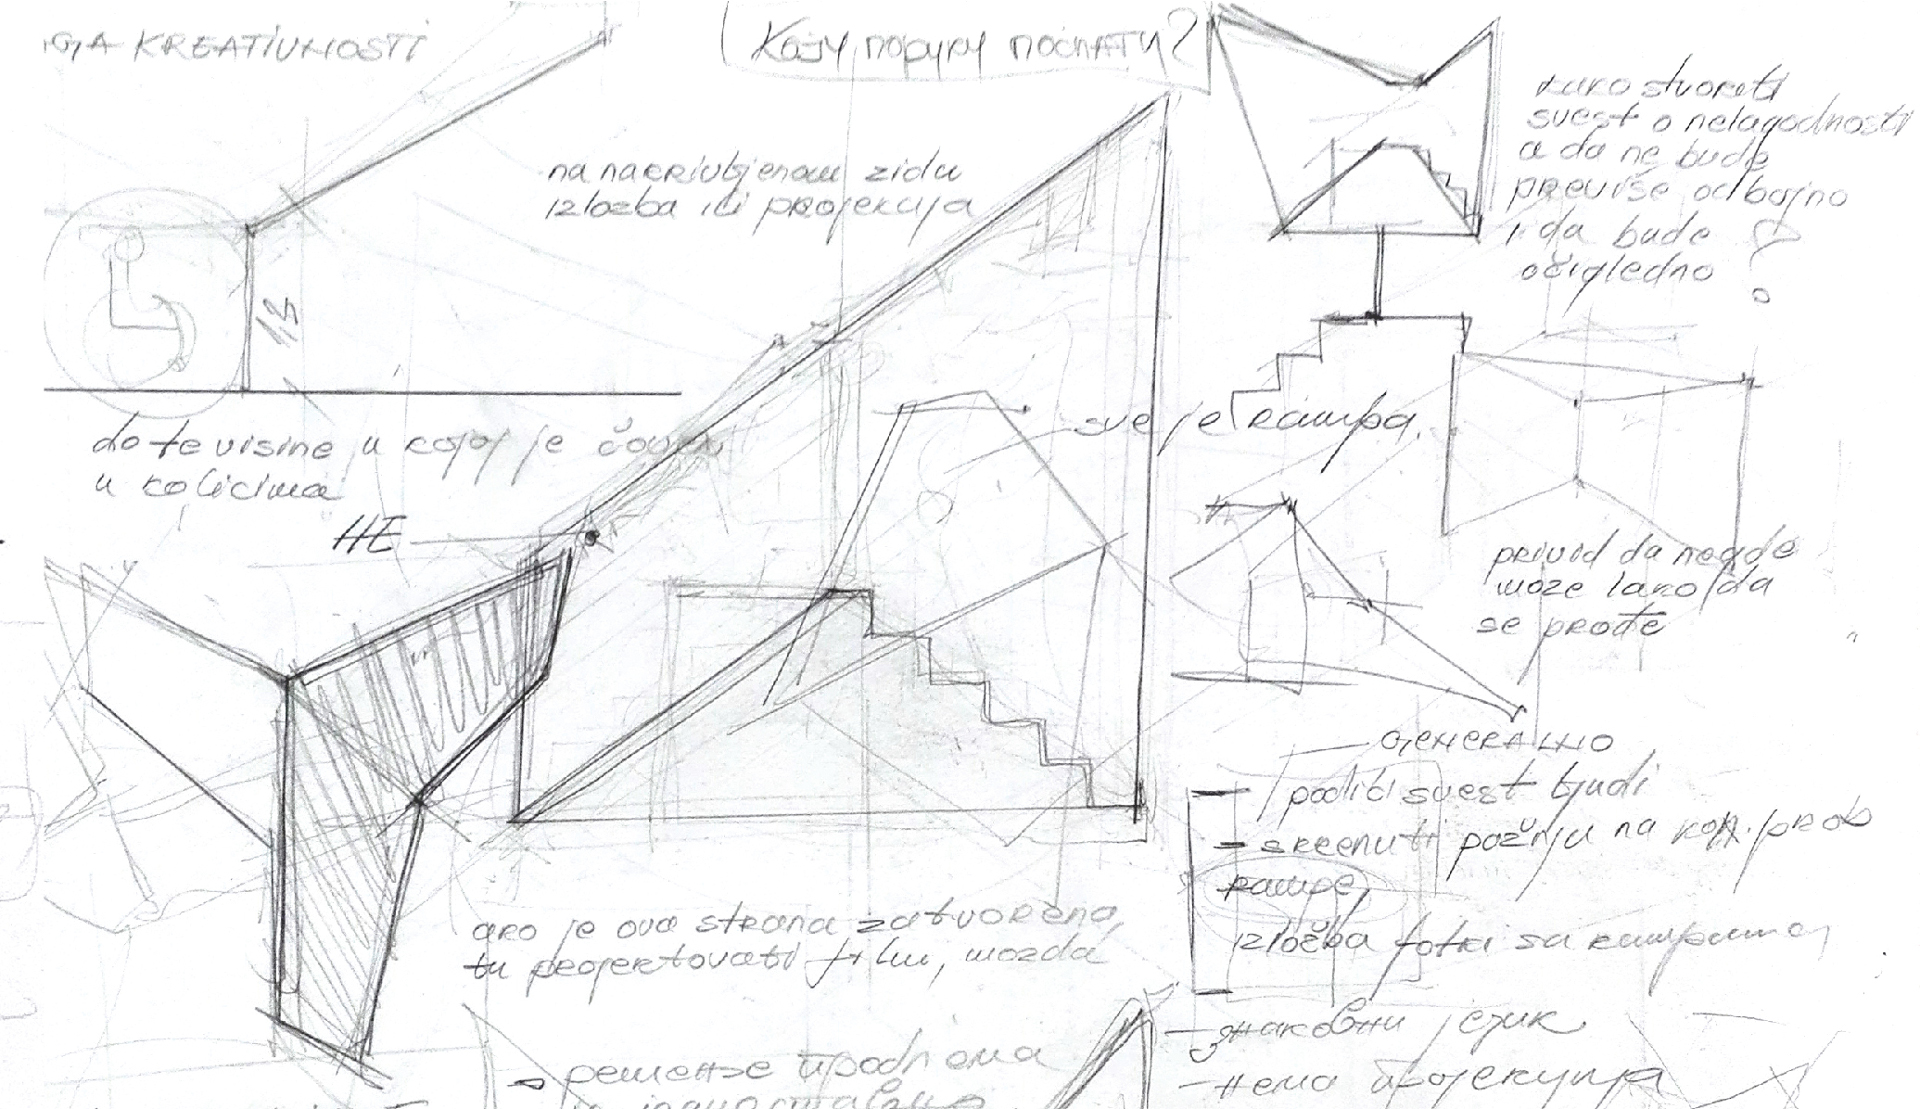 KREATIVNOSTI
Кажу поруку
na nakrivljenom zidu
izložba ili projekcija
kako stvoriti
svest o nelagodnosti
a da ne bude
previše odbojno
i da bude
očigledno
?
do te visine u kojoj je čovek
u kolicima
НЕ
sve je rampa
privid da negde
može lako da
se prođe
GENERALNO
podići svest ljudi
- skrenuti pažnju na
rampe
izložba fotki sa rampama
ako je ova strana zatvorena,
tu projektovati film, možda
- знаковни језик
- нема пројекција
решење проблема